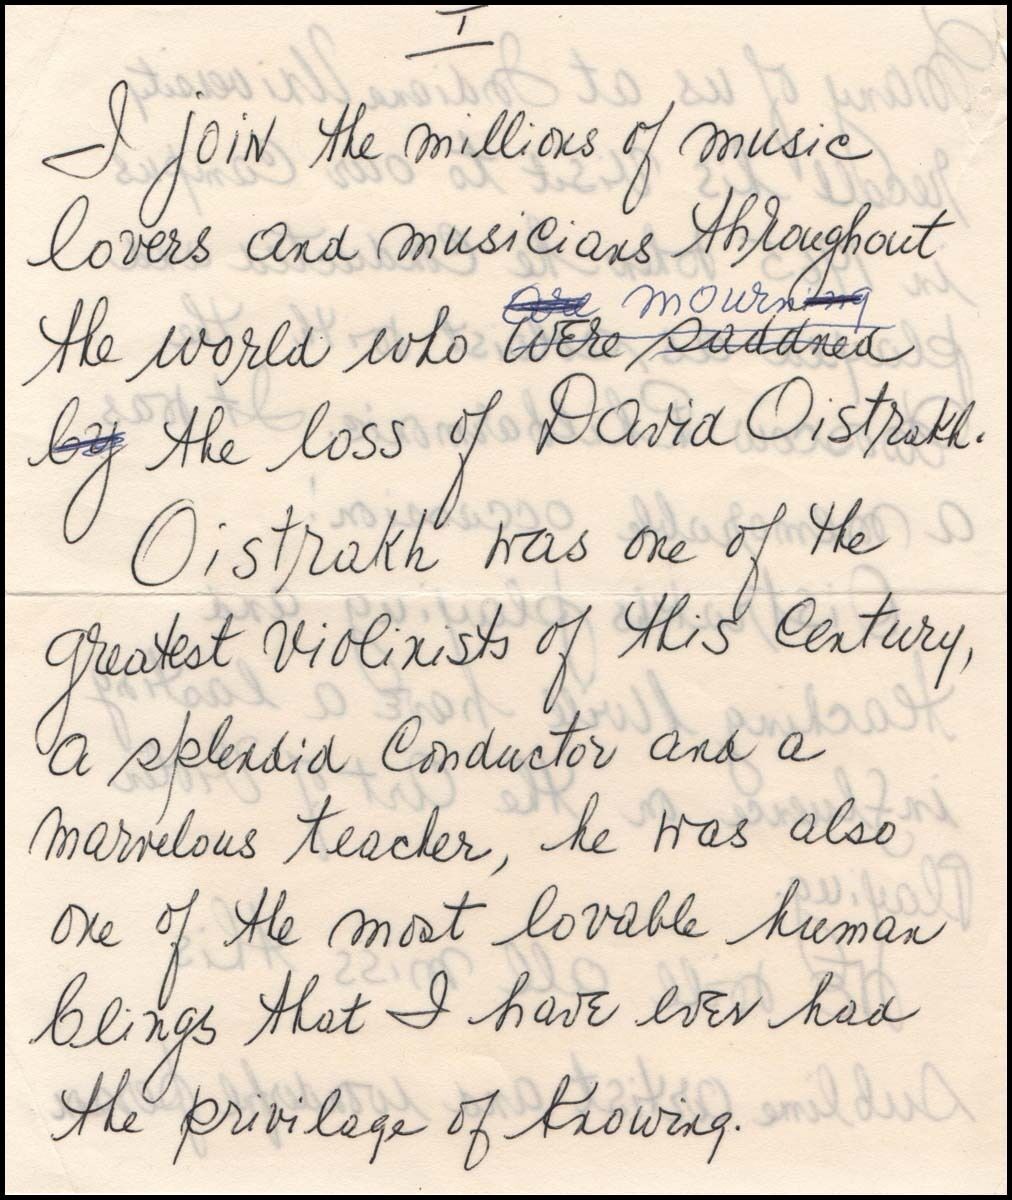 I
I join the millions of music
lovers and musicians throughout
are mourning
the world who were saddned
by the loss of David Oistrakh.
Oistrakh was one of the
greatest violinists of this Century,
a splendid Conductor and a
marvelous teacher, he was also
one of the most lovable human
beings that I have ever had
the privilage of knowing.